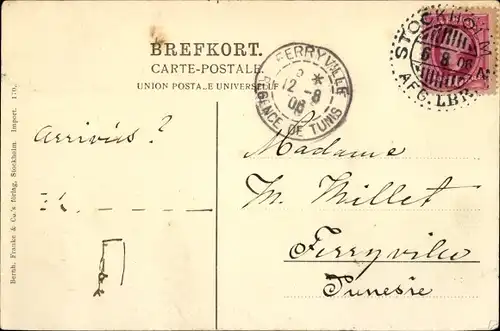 BREFKORT.
CARTE-POSTALE.
UNION POSTALE UNIVERSELLE
FERRYVILLE
12-8
06
REGENCE DE TUNIS
STOCKHOLM
6 8 06
AFG. LBR.
Arrivés?
Madame
M. Millet
Ferryville
Tunesie
Bernh. Franke & Co.s förlag, Stockholm. Import.